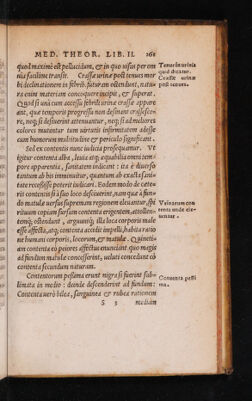 MED. THEOR. LIB. II. 261
quod maximè est pellucidum, & in quo visus per om
nia facilimè transit. Crassæ urinæ post tenues mor
bi declinationem in febrib. futuram ostendunt, natu-
ra enim materiam concoquere incipit, & superat.
Quod si unà cum accessu febrili urinæ crassæ appare
ant, quæ temporis progressu non desinant crassesce-
re, neq; si desierint attenuentur, neq; si ad meliores
colores mutentur tum virtutis infirmitatem adesse
cum humorum multitudine & periculo significant.
Sed ex contentis nunc iudicia prosequamur. Vt
igitur contenta alba, leuia atq; æquabilia omni tem-
pore apparentia, sanitatem indicant: ita è diuerso
tantum ab his imminuitur, quantum ab exacta sani-
tate recessisse poterit iudicari. Eodem modo de cæte-
ris contentis si à suo loco desciuerint, nam quæ à fun-
do matulæ uersus supremam regionem eleuantur, spi
rituum copiam sursum contenta erigentem, attollen-
temq; ostendunt, arguuntq; illa loca corporis male
esse affecta, atq; contenta accedit impelli, habita ratio
ne humani corporis, locorum, & matulæ. Quineti-
am contenta eò peiores affectus enunciant quo magis
ad fundum matulæ concesserint, ueluti concedunt eò
contenta secundum naturam.
Contentorum pessima erunt nigra si fuerint sub-
limata in medio: deinde descenderint ad fundum:
Contenta uerò lutea, sanguinea & rubea rationem
S 3 mediam
Tenuis urinis
quid dicatur.
Crassæ urinæ
post tenues.
Vrinarum con
tenta unde ele-
uentur.
Contenta pessi
ma.